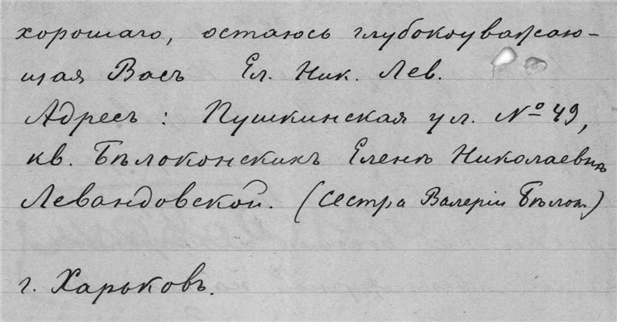 хорошаго, остаюсь глубокоуважаю-
щая Васъ Ел. Ник. Лев.
Адресъ: Пушкинская ул. № 49,
кв. Бѣлоконскихъ Еленѣ Николаевнѣ
Левандовской. (Сестра Валеріи Бѣлок.)
г. Харьковъ.